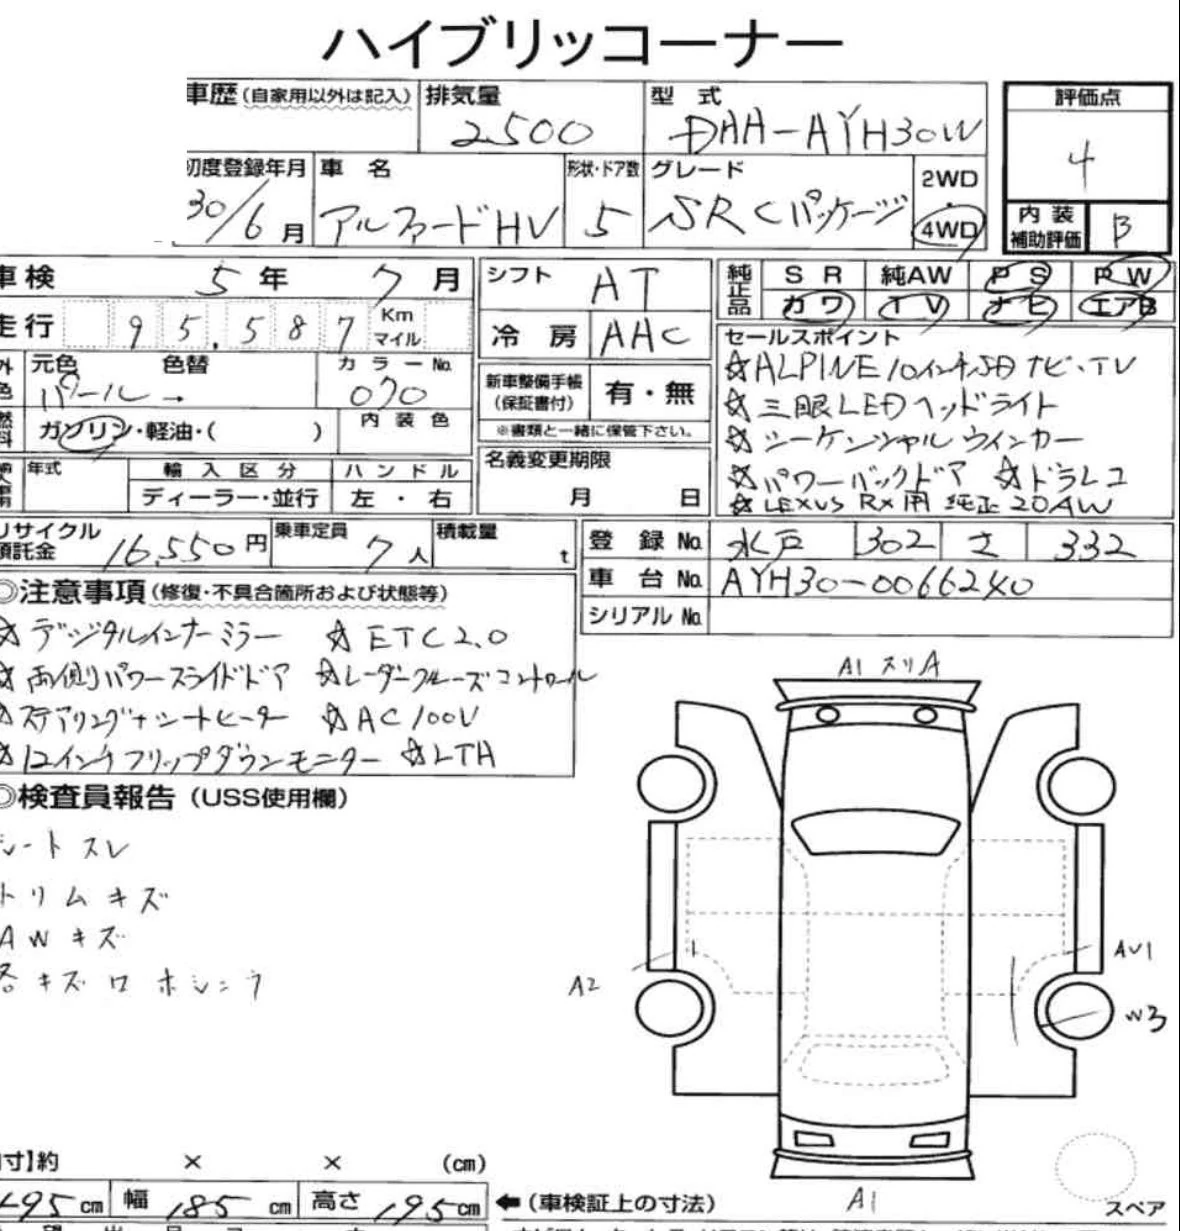 ハイブリッコーナー
車歴(自家用以外は記入) 排気量 2500 型式 DAA-AYH30W 評価点 4
初度登録年月 30/6月 車名 アルファードHV 形状・ドア数 5 グレード SR Cパッケージ 2WD・4WD 内装補助評価 B
車検 5年 7月 シフト AT 純正品 SR 純AW PS PW
カワ TV ナビ エアB
走行 95,587 Km マイル 冷房 AAC セールスポイント
☆ALPINE 10インチSDナビ・TV
☆三眼LEDヘッドライト
☆シーケンシャルウインカー
☆パワーバックドア ☆ドラレコ
☆LEXUS RX用 純正 20AW
外色 元色 パール→ 色替 カラーNo. 070 新車整備手帳(保証書付) 有・無
※書類と一緒に保管下さい。
燃料 ガソリン・軽油・( ) 内装色
年式 輸入区分 ディーラー・並行 ハンドル 左・右 名義変更期限 月 日
リサイクル預託金 16,550円 乗車定員 7人 積載量 t
登録No. 水戸 302 さ 332
車台No. AYH30-0066240
シリアルNo.
◎注意事項(修復・不具合箇所および状態等)
☆デジタルインナーミラー ☆ETC2.0
☆両側パワースライドドア ☆レーダークルーズコントロール
☆ステアリング+シートヒーター ☆AC100V
☆12インチフリップダウンモニター ☆LTH
◎検査員報告(USS使用欄)
シートスレ
トリムキズ
AWキズ
各キズワホシニラ
A1 スリA
A2
AU1
W3
A1
スペア
寸]約 × × (cm)
495cm 幅 185cm 高さ 195cm ←(車検証上の寸法)